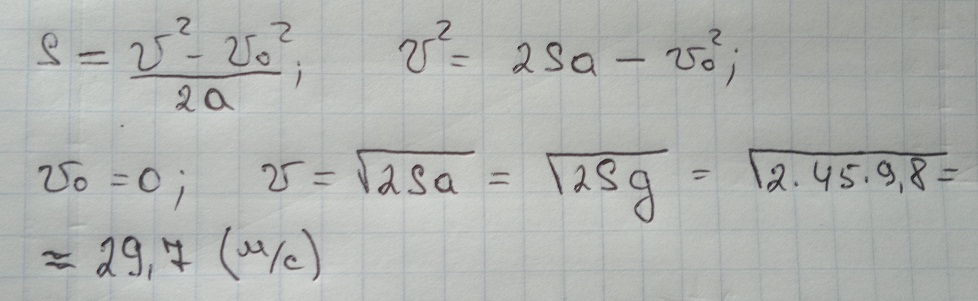 S = (v² - v₀²) / 2a; v² = 2Sa - v₀²;
v₀ = 0; v = √(2Sa) = √(2Sg) = √(2·45·9,8) =
≈ 29,7 (м/с)